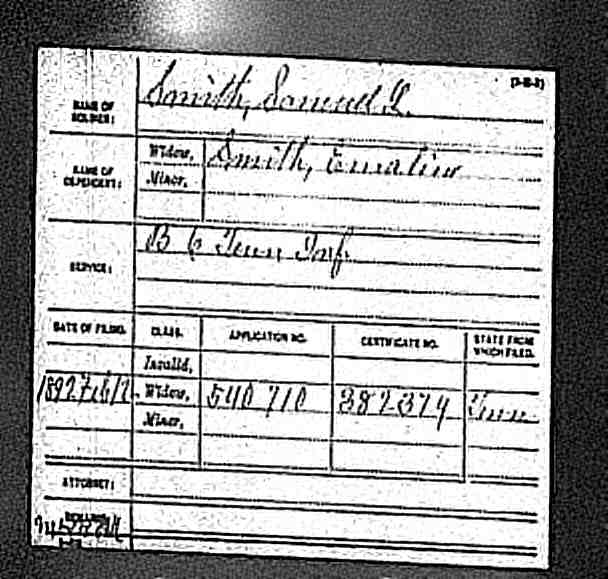 (3-B-3)
NAME OF SOLDIER: Smith, Samuel
NAME OF DEPENDENT: Widow, Smith, Emaline
Minor,
SERVICE: B 6 Tenn Inf
DATE OF FILING. CLASS. APPLICATION NO. CERTIFICATE NO. STATE FROM WHICH FILED.
Invalid,
1892 Feb Widow, 540 710 Tenn
Minor,
ATTORNEY: